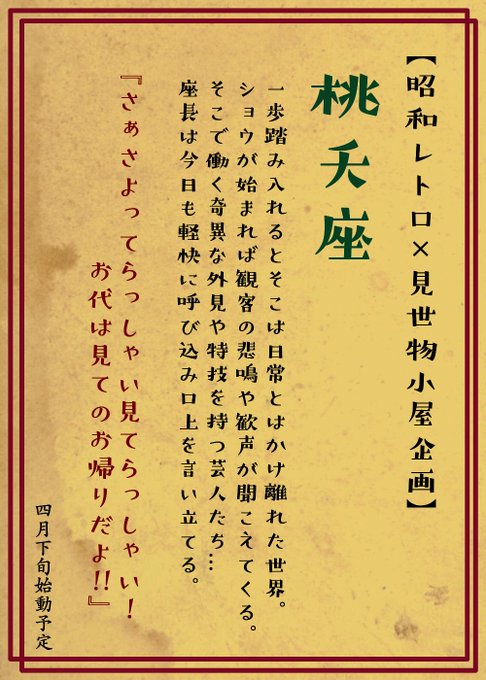 【昭和レトロ×見世物小屋企画】
桃夭座
一歩踏み入れるとそこは日常とはかけ離れた世界。
ショウが始まれば観客の悲鳴や歓声が聞こえてくる。
そこで働く奇異な外見や特技を持つ芸人たち…
座長は今日も軽快に呼び込み口上を言い立てる。
『さぁさよってらっしゃい見てらっしゃい！
お代は見てのお帰りだよ!!』
四月下旬始動予定